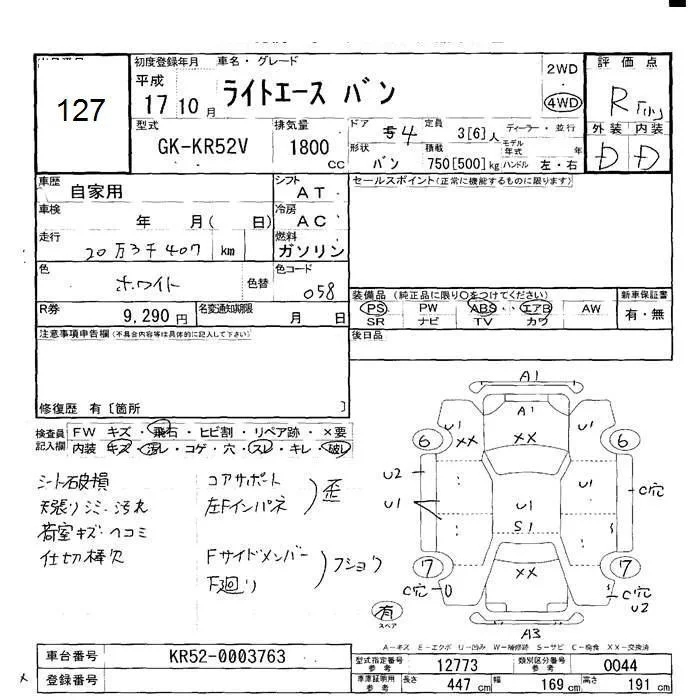 127
初度登録年月 車名・グレード
平成
17 10 月
ライトエース バン
2WD
4WD
評価点
R
外装 内装
D D
型式
GK-KR52V
排気量
1800
CC
ドア 4 定員 3[6]人
形状 バン 積載 750[500]kg
ディーラー・並行
モデル年式 年
ハンドル 左・右
車歴 自家用
シフト AT
車検 年 月( 日)
冷房 AC
走行 20万3千407 km
燃料 ガソリン
色 ホワイト 色替
色コード 058
R券 9,290円
名変通知期限 月 日
セールスポイント(正常に機能するものに限ります)
装備品 (純正品に限り○をつけてください)
PS PW ABS・・エアB AW
SR ナビ TV カワ
新車保証書
有・無
後日品
注意事項申告欄(不具合内容等は具体的に記入して下さい)
修復歴 有〔箇所 〕
検査員記入欄
FW キズ・飛石・ヒビ割・リペア跡・×要
内装 キズ・汚レ・コゲ・穴・スレ・キレ・破レ
シート破損
天張りシミ・汚れ
荷室キズ・ヘコミ
仕切棒欠
コアサポート
左Fインパネ
歪
Fサイドメンバー
F廻り
フショク
A1
A1
U1 XX
XX
U1
6 6
U2
U1
U1
U1
S1
C穴
7 7
XX
C穴
C穴
U2
有
スペア
A3
A-キズ E-エクボ U-凹み W-補修跡 S-サビ C-腐食 XX-交換済
車台番号 KR52-0003763
登録番号
型式指定番号 参考 12773
類別区分番号 参考 0044
車庫証明用 参考 長さ 447 cm 幅 169 cm 高さ 191 cm